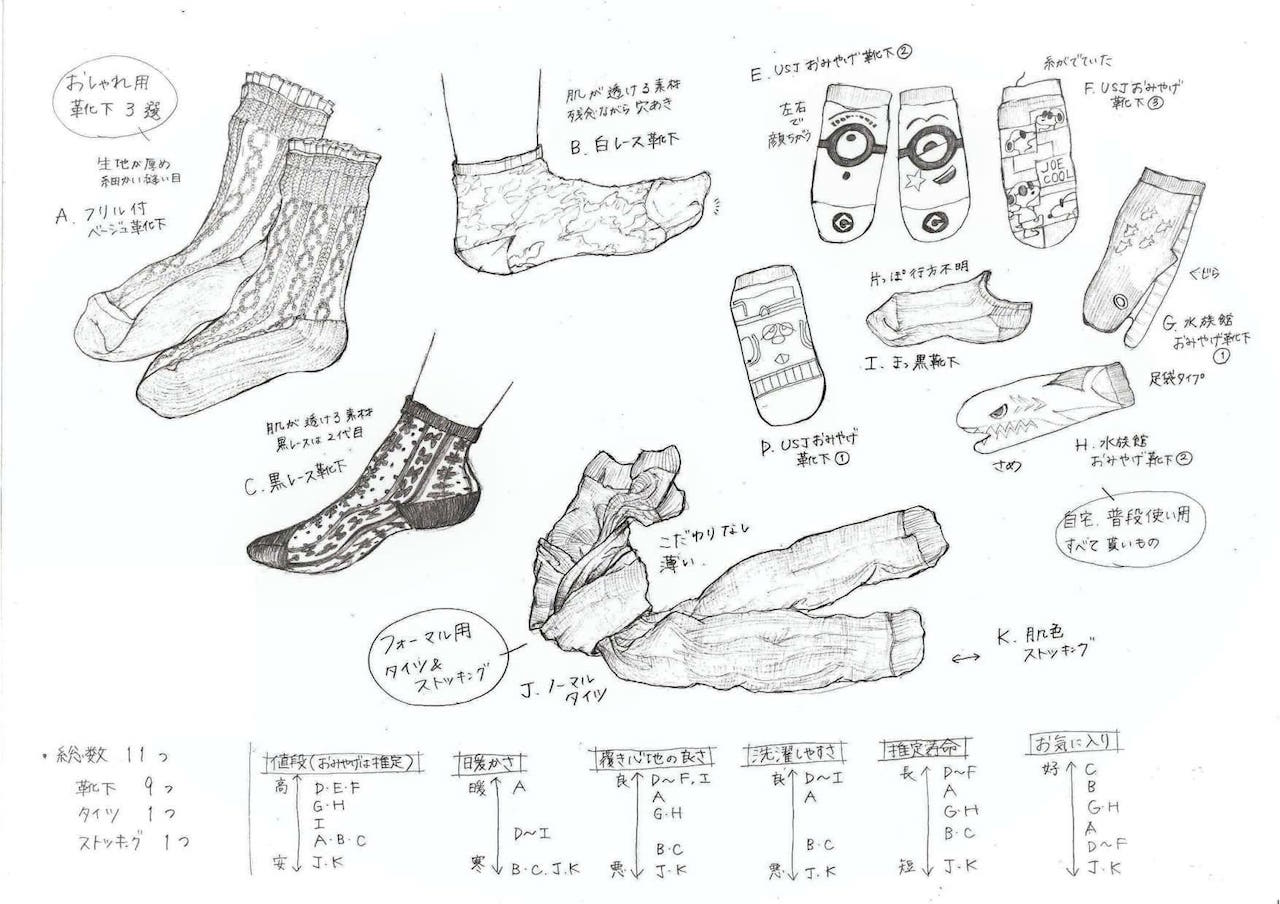 おしゃれ用
靴下 3選
生地が厚め
細かい縫い目
A. フリル付
ベージュ靴下
肌が透ける素材
残念ながら穴あき
B. 白レース靴下
肌が透ける素材
黒レースは2代目
C. 黒レース靴下
E. USJおみやげ靴下②
左右
で
顔ちがう
糸がでていた
F. USJおみやげ
靴下③
JOE
COOL
D. USJおみやげ
靴下①
片っぽ行方不明
I. まっ黒靴下
くじら
G. 水族館
おみやげ靴下
①
足袋タイプ
さめ
H. 水族館
おみやげ靴下②
自宅、普段使い用
すべて貰いもの
こだわりなし
薄い
フォーマル用
タイツ&
ストッキング
J. ノーマル
タイツ
↔ K. 肌色
ストッキング
・総数 11つ
靴下 9つ
タイツ 1つ
ストッキング 1つ
値段(おみやげは推定)
高 D・E・F
G・H
I
A・B・C
安 J・K
暖かさ
暖 A
D〜I
寒 B・C、J・K
履き心地の良さ
良 D〜F, I
A
G・H
B・C
悪 J・K
洗濯しやすさ
良 D〜I
A
B・C
悪 J・K
推定寿命
長 D〜F
A
G・H
B・C
短 J・K
お気に入り
好 C
B
G・H
A
D〜F
J・K